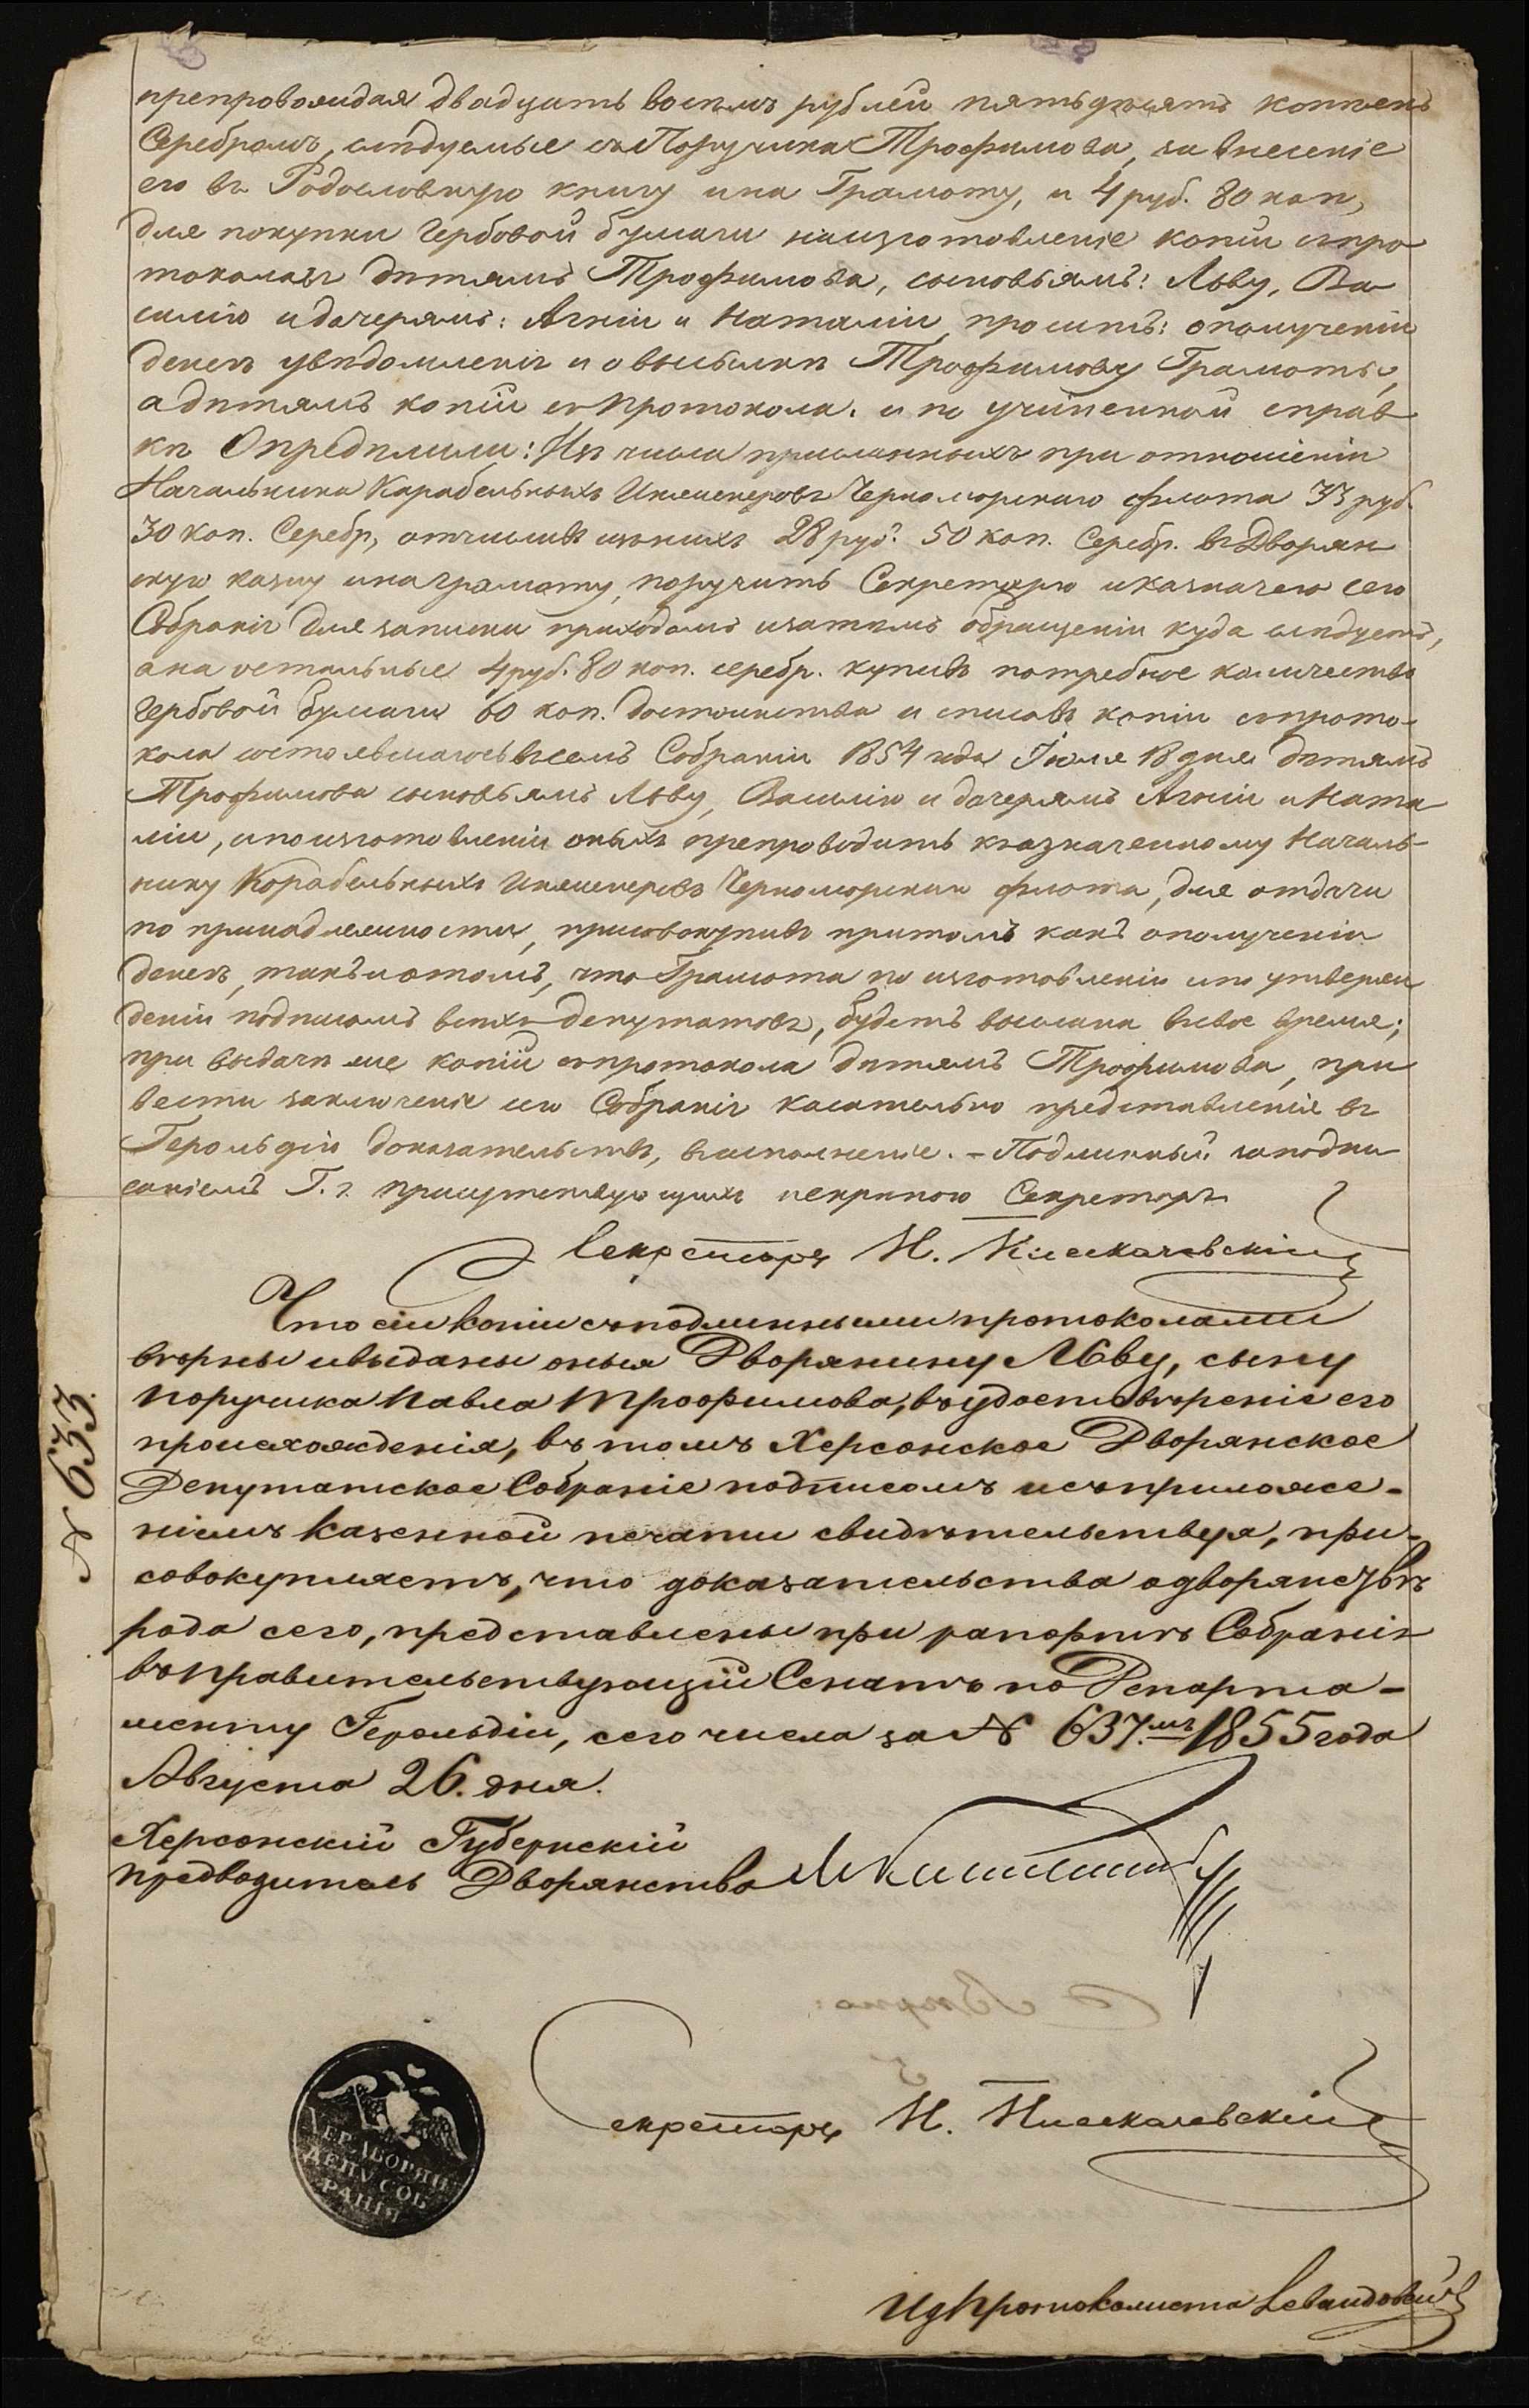 препровождая двадцать восемь рублей пятьдѣсять копѣекъ
Серебромъ, слѣдуемые съ Поручика Трофимова, за внесеніе
его въ Родословную книгу и на Грамоту, и 4 руб. 80 коп,
для покупки Гербовой бумаги на изготовленіе копій съ про
токоловъ дѣтямъ Трофимова, сыновьямъ: Льву, Ва
силію и дочерямъ: Агніи и Наталіи, проситъ: о полученіи
денегъ увѣдомленія и о высылкѣ Трофимову Грамоты,
а дѣтямъ копій съ протокола. и по учиненной справ
кѣ Опредѣлили: Изъ числа присланныхъ при отношеніи
Начальника Карабельныхъ Инженеровъ Черноморскаго флота 33 руб.
30 коп. Серебр, отчисливъ изъ нихъ 28 руб. 50 коп. Серебр. въ Дворян
скую казну и на грамоту, поручить Секретарю и казначею сего
Собранія для записки приходомъ и затѣмъ обращеніи куда слѣдуетъ,
а на остальные 4 руб. 80 коп. серебр. купивъ потребное количество
Гербовой бумаги 60 коп. достоинства и списавъ копіи съ прото-
кола состоявшагось въ семъ Собраніи 1854 года Іюля 18 дня дѣтямъ
Трофимова сыновьямъ Льву, Василію и дочерямъ Агніи и Ната
ліи, и по изготовленіи оныхъ препроводить къ означенному Началь-
нику Корабельныхъ Инженеровъ Черноморскаго флота, для отдачи
по принадлежности, присовокупивъ притомъ какъ о полученіи
денегъ, такъ и о томъ, что Грамота по изготовленіи и по утвержд
деніи подписомъ всѣхъ депутатовъ, будетъ выслана въ свое время;
при выдачѣ же копій съ протокола дѣтямъ Трофимова, при
вести заключеніе сего Собранія касательно представленія въ
Герольдію доказательствъ, въ исполненіе. – Подлинный за подпи
саніемъ Г. г. присутствующихъ и скрѣпою Секретаря
Секретарь Н. Пискачевскій
Что сіи копіи съ подлинными протоколами
вѣрны и выданы оныя Дворянину Льву, сыну
поручика Павла Трофимова, въ удостовѣреніе его
происхожденія, въ томъ Херсонское Дворянское
Депутатское Собраніе подписомъ и съ приложе-
ніемъ казенной печати свидѣтельствуя, при-
совокупляетъ, что доказательства о дворянствѣ
рода сего, представлены при рапортѣ Собранія
въ Правительствующій Сенатъ по Департа-
менту Герольдіи, сего числа за № 637.мъ 1855 года
Августа 26. дня.
№ 633.
Херсонскій Губернскій
предводитель Дворянства
Секретарь Н. Пискачевскій
ХЕР. ДВОРЯН
ДЕПУ СОБ
РАНІЯ
Ид Протоколиста Левандовскій